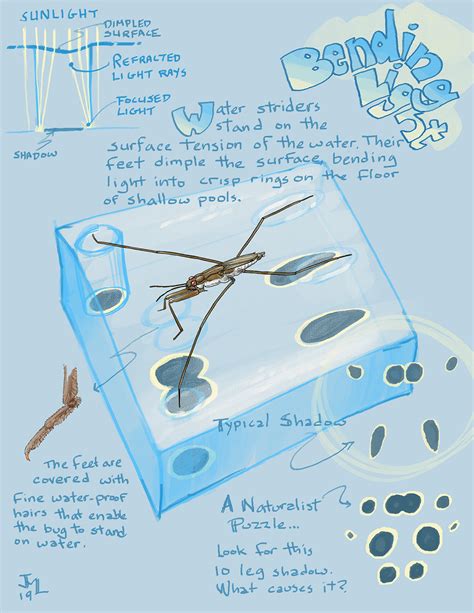 SUNLIGHT
DIMPLED
SURFACE
REFRACTED
LIGHT RAYS
FOCUSED
LIGHT
SHADOW
Bending
Light
Water striders
stand on the
surface tension of the water. Their
feet dimple the surface, bending
light into crisp rings on the floor
of shallow pools.
Typical Shadow
The feet are
covered with
fine water-proof
hairs that enable
the bug to stand
on water.
A Naturalist
Puzzle...
Look for this
10 leg shadow.
What causes it?
JML
19